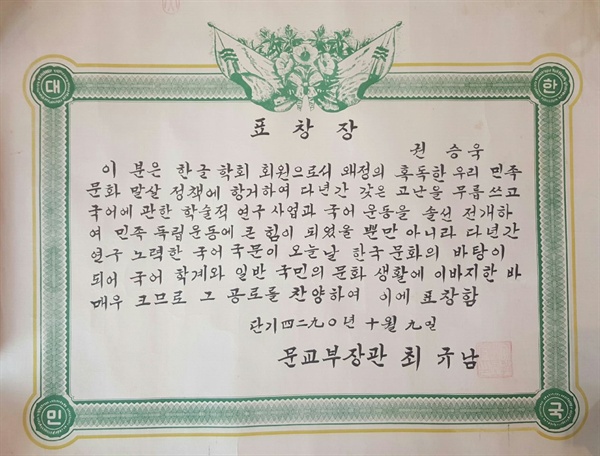 대 한
표창장
권승욱
이 분은 한글 학회 회원으로서 왜정의 혹독한 우리 민족
문화 말살 정책에 항거하여 다년간 갖은 고난을 무릅쓰고
국어에 관한 학술적 연구 사업과 국어 운동을 솔선 전개하
여 민족 독립운동에 큰 힘이 되었을 뿐만 아니라 다년간
연구 노력한 국어 국문이 오늘날 한국 문화의 바탕이
되어 국어 학계와 일반 국민의 문화 생활에 이바지한 바
매우 크므로 그 공로를 찬양하여 이에 표창함
단기四二九〇년 十월 九일
문교부장관 최규남
민 국